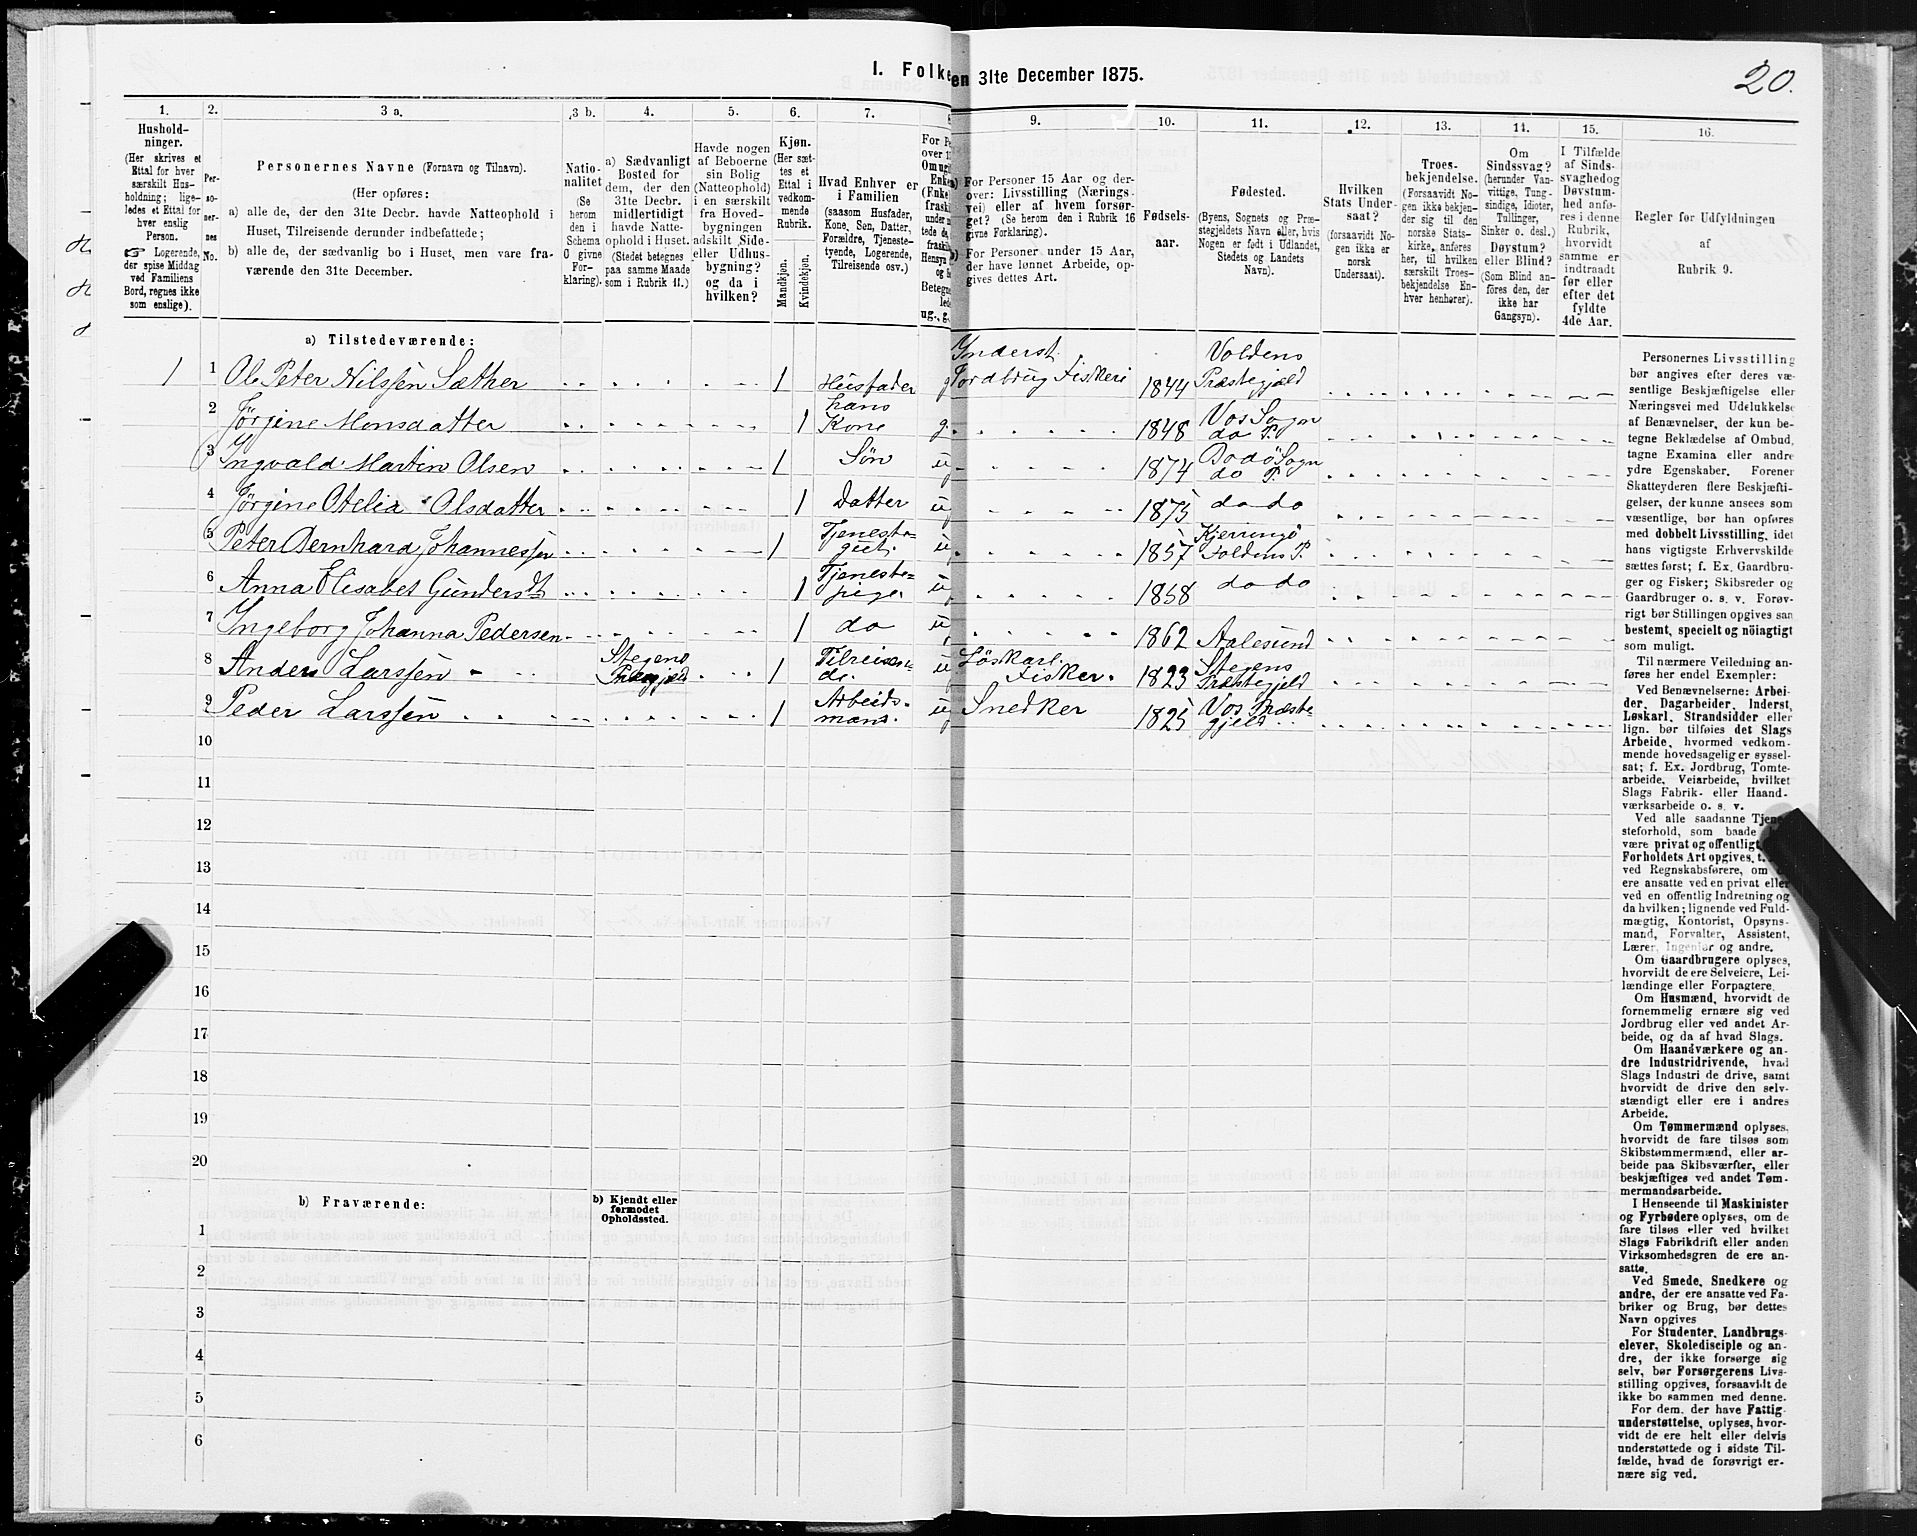 I. Folke
en 31te December 1875.
20.
1.
2.
3 a.
3 b.
4.
5.
6.
7.
8
9.
10.
11.
12.
13.
14.
15.
16.
Hushold-
ninger.
(Her skrives et
Ettal for hver
særskilt Hus-
holdning; lige-
ledes et Ettal for
hver enslig
Person.
☞ Logerende,
der spise Middag
ved Familiens
Bord, regnes ikke
som enslige).
Per-
so-
ner-
nes
No.
Personernes Navne (Fornavn og Tilnavn).
(Her opføres:
a) alle de, der den 31te Decbr. havde Natteophold i
Huset, Tilreisende derunder indbefattede;
b) alle de, der sædvanlig bo i Huset, men vare fra-
værende den 31te December.
Natio-
nalitet
(Se
herom
den i
Schema
O givne
For-
klaring).
a) Sædvanligt
Bosted for
dem, der den
31te Decbr.
midlertidigt
havde Natte-
ophold i Huset.
(Stedet betegnes
paa samme Maade
som i Rubrik 11.)
Havde nogen
af Beboerne
sin Bolig
(Natteophold)
i en særskilt
fra Hoved-
bygningen
adskilt Side-
eller Udhus-
bygning?
og da i
hvilken?
Kjøn.
(Her sæt-
tes et
Ettal i
vedkom-
mende
Rubrik.
Mandkjøn.
Kvindekjøn.
Hvad Enhver er
i Familien
(saasom Husfader,
Kone, Søn, Datter,
Forældre, Tjeneste-
tyende, Logerende,
Tilreisende osv.)
a) For Personer 15 Aar og der-
over: Livsstilling (Nærings-
vei) eller af hvem forsør-
get? (Se herom den i Rubrik 16
givne Forklaring).
b) For Personer under 15 Aar,
der have lønnet Arbeide, op-
gives dettes Art.
Fødsels-
aar.
Fødested.
(Byens, Sognets og Præ-
stegjeldets Navn eller, hvis
Nogen er født i Udlandet,
Stedets og Landets
Navn).
Hvilken
Stats Under-
saat?
(forsaavidt No-
gen ikke er
norsk
Undersaat).
Troes-
bekjendelse.
(Forsaavidt No-
gen ikke bekjen-
der sig til den
norske Stats-
kirke, anføres
her, til hvilken
særskilt Troes-
bekjendelse En-
hver henhører).
Om
Sindssvag?
(herunder Van-
vittige, Tung-
sindige, Idioter,
Tullinger,
Sinker o. desl.)
Døvstum?
eller Blind?
(Som Blind an-
føres den, der
ikke har
Gangsyn).
I Tilfælde
af Sinds-
svaghed og
Døvstum-
hed anfø-
res i denne
Rubrik,
hvorvidt
samme er
indtraadt
før eller
efter det
fyldte
4de Aar.
Regler for Udfyldningen
af
Rubrik 9.
a) Tilstedeværende:
1 1 Ole Peter Nilssen Sæther 1 Husfader g Inderst. Jordbrug Fiskeri 1844 Voldens Præstegjæld
2 Jørgine Monsdatter 1 hans Kone g. 1848 Vos Sogn do P.
3 Ingvald Martin Olsen 1 Søn u 1874 Bodø Sogn do P.
4 Jørgine Otelia Olsdatter 1 Datter u 1875 do do
5 Peter Bernhard Johannessen 1 Tjeneste- gut. u 1857 Kjerringø Foldens P.
6 Anna Elisabet Gundersdt 1 Tjeneste- pige. u 1858 do do
7 Ingeborg Johanna Pedersen 1 do u 1862 Aalesund
8 Anders Larssen Stegens 1 Tilreisen- de. u Løskarl. Fisker. 1823 Stegens Præstegjeld
9 Peder Larssen 1 Arbeids- mand. u Snedker 1825 Vos Præste- gjeld
10
11
12
13
14
15
16
17
18
19
20
b) Fraværende:
b) Kjendt eller
formodet
Opholdssted.
1
2
3
4
5
6
Personernes Livsstilling
bør angives efter deres væ-
sentlige Beskjæftigelse eller
Næringsvei med Udelukkelse
af Benævnelser, der kun be-
tegne Beklædelse af Ombud,
tagne Examina eller andre
ydre Egenskaber. Forener
Skatteyderen flere Beskjæfti-
gelser, der kunne ansees som
væsentlige, bør han opføres
med dobbelt Livsstilling, idet
hans vigtigste Erhvervskilde
sættes først; f. Ex. Gaardbru-
ger og Fisker; Skibsreder og
Gaardbruger o. s. v. Forøv-
rigt bør Stillingen opgives saa
bestemt, specielt og nöiagtigt
som muligt.
Til nærmere Veiledning an-
føres her endel Exempler:
Ved Benævnelserne: Arbei-
der, Dagarbeider, Inderst,
Løskarl, Strandsidder eller
lign. bør tilføies det Slags
Arbeide, hvormed vedkom-
mende hovedsagelig er syssel-
sat; f. Ex. Jordbrug, Tomte-
arbeide, Veiarbeide, hvilket
Slags Fabrik- eller Haand-
værksarbeide o. s. v.
Ved alle saadanne Tjen
steforhold, som baade
være privat og offentligt
Forholdets Art opgives,
ved Regnskabsførere, om
ere ansatte ved en privat eller
ved en offentlig Indretning og
da hvilken; lignende ved Fuld-
mægtig, Kontorist, Opsyns-
mand, Forvalter, Assistent,
Lærer, Ingeniør og andre.
Om Gaardbrugere oplyses,
hvorvidt de ere Selveiere, Lei-
lændinge eller Forpagtere.
Om Husmænd, hvorvidt de
fornemmelig ernære sig ved
Jordbrug eller ved andet Ar-
beide, og da af hvad Slags.
Om Haandværkere og an-
dre Industridrivende, hvad
Slags Industri de drive, samt
hvorvidt de drive den selv-
stændigt eller ere i andres
Arbeide.
Om Tømmermænd oplyses,
hvorvidt de fare tilsøs som
Skibstømmermænd, eller ar-
beide paa Skibsværfter, eller
beskjæftiges ved andet Tøm-
mermandsarbeide.
I Henseende til Maskinister
og Fyrbødere oplyses, om de
fare tilsøs eller ved hvilket
Slags Fabrikdrift eller anden
Virksomhedsgren de ere an-
satte.
Ved Smede, Snedkere og
andre, der ere ansatte ved Fa-
briker og Brug, bør dettes
Navn opgives
For Studenter, Landbrugs-
elever, Skoledisciple og an-
dre, der ikke forsørge sig
selv, bør Forsørgerens Livs-
stilling opgives, forsaavidt de
ikke bo sammen med denne.
For dem, der have Fattig-
understøttelse, oplyses, hvor-
vidt de ere helt eller delvis
understøttede og i sidste Til-
fælde, hvad de forøvrigt er-
nære sig ved.